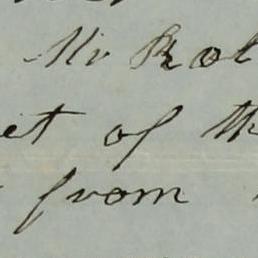 Mr Rol
et of th
from